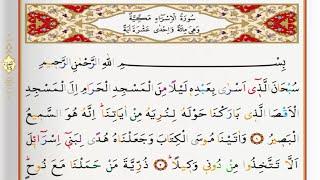 سُورَةُ الْإِسْرَاءِ مَكِّيَّةٌ
وَهِيَ مِائَةٌ وَاِحْدٰى عَشَرَةَ اٰيَةً
بِسْمِ اللّٰهِ الرَّحْمٰنِ الرَّحٖيمِ
سُبْحَانَ الَّذٖٓى اَسْرٰى بِعَبْدِهٖ لَيْلًا مِنَ الْمَسْجِدِ الْحَرَامِ اِلَى الْمَسْجِدِ
الْاَقْصَا الَّذٖى بَارَكْنَا حَوْلَهُ لِنُرِيَهُ مِنْ اٰيَاتِنَا اِنَّهُ هُوَ السَّمٖيعُ
الْبَصٖيرُ وَاٰتَيْنَا مُوسَى الْكِتَابَ وَجَعَلْنَاهُ هُدًى لِبَنٖٓى اِسْرَائٖلَ
اَلَّا تَتَّخِذُوا مِنْ دُونٖى وَكٖيلًا ذُرِّيَّةَ مَنْ حَمَلْنَا مَعَ نُوحٍ